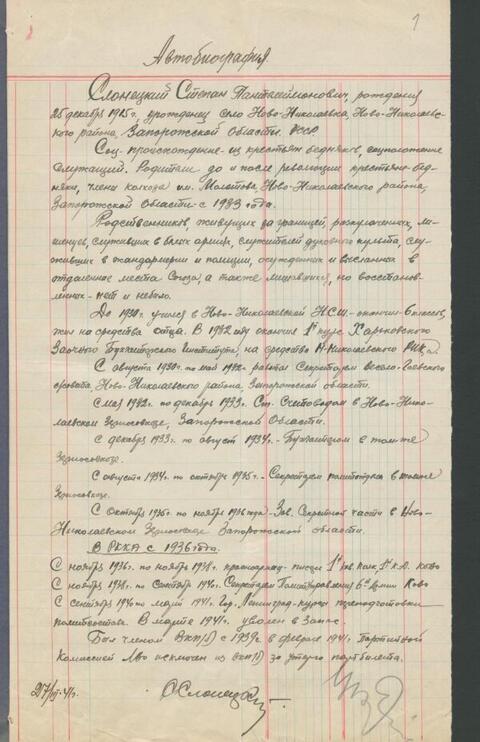 1
Автобиография.
Слонецкий Степан Пантелеймонович, рождения
25 декабря 1915 г, уроженец село Ново-Николаевка, Ново-Николаевс-
кого района, Запорожской области, УССР
Соц-происхождение-из крестьян бедняков, соцположение
служащий. Родители до и после революции крестьяне-бед-
няки, члены колхоза им. Молотова Ново-Николаевского района,
Запорожской области - с 1933 года.
Родственников, живущих за границей, раскулаченных, ли-
шенцев, служивших в белых армиях, служителей духовного культа, слу-
живших в жандармерии и полиции, осужденных и высланных в
отдаленные места Союза, а также лишавшихся, но восстанов-
ленных - нет и небыло.
До 1930 г учился в Ново-Николаевской Н.С.Ш. - окончил 6 классов,
жил на средства отца. В 1932 году окончил 1й курс Харьковского
Заочного Бухгалтерского Института, на средства Н-Николаевского
С августа 1930 г. по май 1932 г. работал Секретарем Весело-Гаевского
сельсовета, Ново-Николаевского района, Запорожской области.
С мая 1932 г. по декабрь 1933 г. Ст. Счетоводом в Ново-Нико-
лаевском Зерносовхозе, Запорожской Области.
С декабря 1933 г. по август 1934 г. - Бухгалтером в том же
Зерносовхозе.
С августа 1934 г. по октябрь 1935 г. - Секретарем политотдела в том же
Зерносовхозе.
С октября 1935 г. по ноябрь 1936 года - Зав. Секретной части в Ново-
Николаевском Зерносовхозе Запорожской области.
В РККА с 1936 года.
С ноября 1936 г. по ноябрь 1938 г. красноармеец-писарь 1й
С ноября 1938 г. по сентябрь 1940 г. Секретарем Политуправления 6й Армии Ково
С сентября 1940 по март 1941 г. Гор. Ленинград-курсы переподготовки
политсостава. В марте 1941 г. уволен в Запас.
Был членом ВКП(б) с 1939 г. в феврале 1941 г. Партийной
Комиссией Лво исключен из ВКП(б) за утерю партбилета.
С Слонецкий